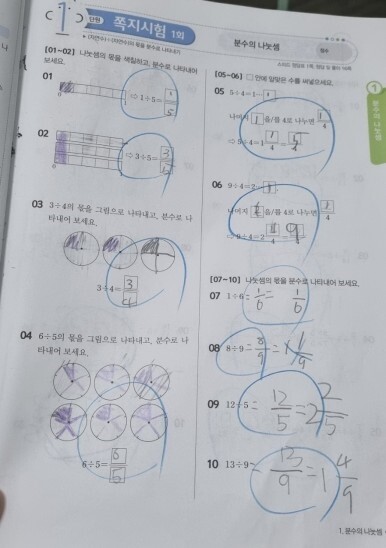 1 단원 쪽지시험 1회
분수의 나눗셈
점수
(자연수)÷(자연수)의 몫을 분수로 나타내기
[01~02] 나눗셈의 몫을 색칠하고, 분수로 나타내어
보세요.
01
0
⇒ 1÷5= 1/5
02
0
⇒ 3÷5= 3/5
03 3÷4의 몫을 그림으로 나타내고, 분수로 나
타내어 보세요.
3÷4= 3/4
04 6÷5의 몫을 그림으로 나타내고, 분수로 나
타내어 보세요.
6÷5= 6/5
[05~06] □ 안에 알맞은 수를 써넣으세요.
05 5÷4=1…1
나머지 1 을/를 4로 나누면 1/4
⇒ 5÷4=1 1/4 = 5/4
06 9÷4=2…1
나머지 1 을/를 4로 나누면 1/4
⇒ 9÷4=2 1/4 = 9/4
[07~10] 나눗셈의 몫을 분수로 나타내어 보세요.
07 1÷6= 1/6 = 1/6
08 8÷9= 8/9 = 1 1/9
09 12÷5= 12/5 = 2 2/5
10 13÷9= 13/9 = 1 4/9
1
분수의 나눗셈
1. 분수의 나눗셈